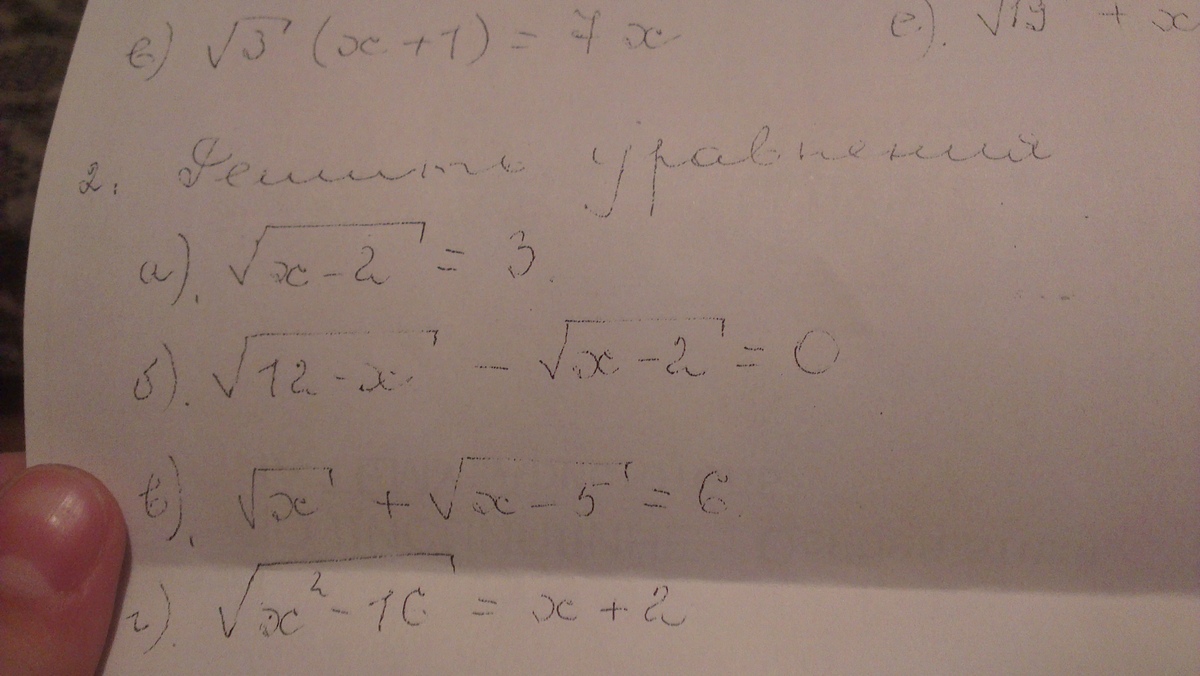 в) √3 (x + 1) = 7x
е). √19 + x
2. Решить уравнения
а). √(x - 2) = 3.
б). √(12 - x) - √(x - 2) = 0
в). √x + √(x - 5) = 6
г). √(x² - 16) = x + 2